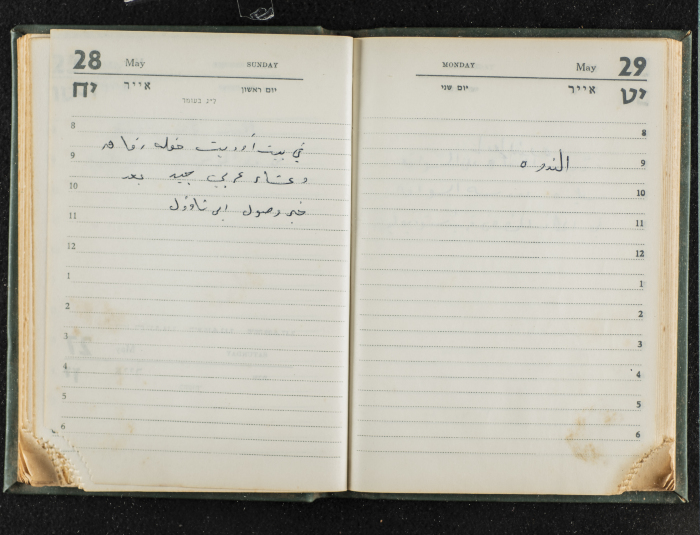 28 May SUNDAY
יח אייר יום ראשון
ל״ג בעומר
8
في بيت أوريت حفله رفاه
9
وعشاء عربي جيد بعد
10
خبر وصول
11
12
1
2
3
4
5
6
MONDAY May 29
יום שני אייר יט
8
9 الندوه
10
11
12
1
2
3
4
5
6